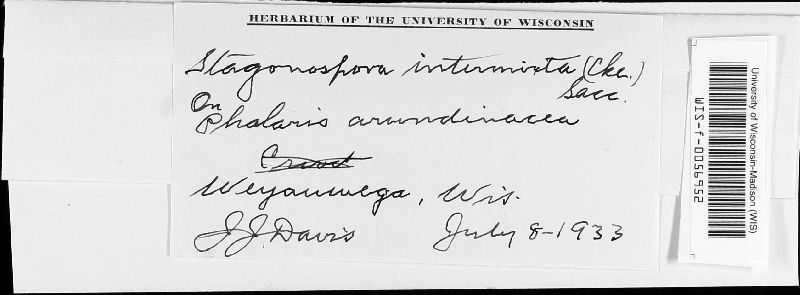 HERBARIUM OF THE UNIVERSITY OF WISCONSIN
Stagonospora intermixta (Cke.)
Sacc.
On
Phalaris arundinacea
Weyauwega, Wis.
J.J. Davis July 8-1933
University of Wisconsin-Madison (WIS)
WIS-f-0056952